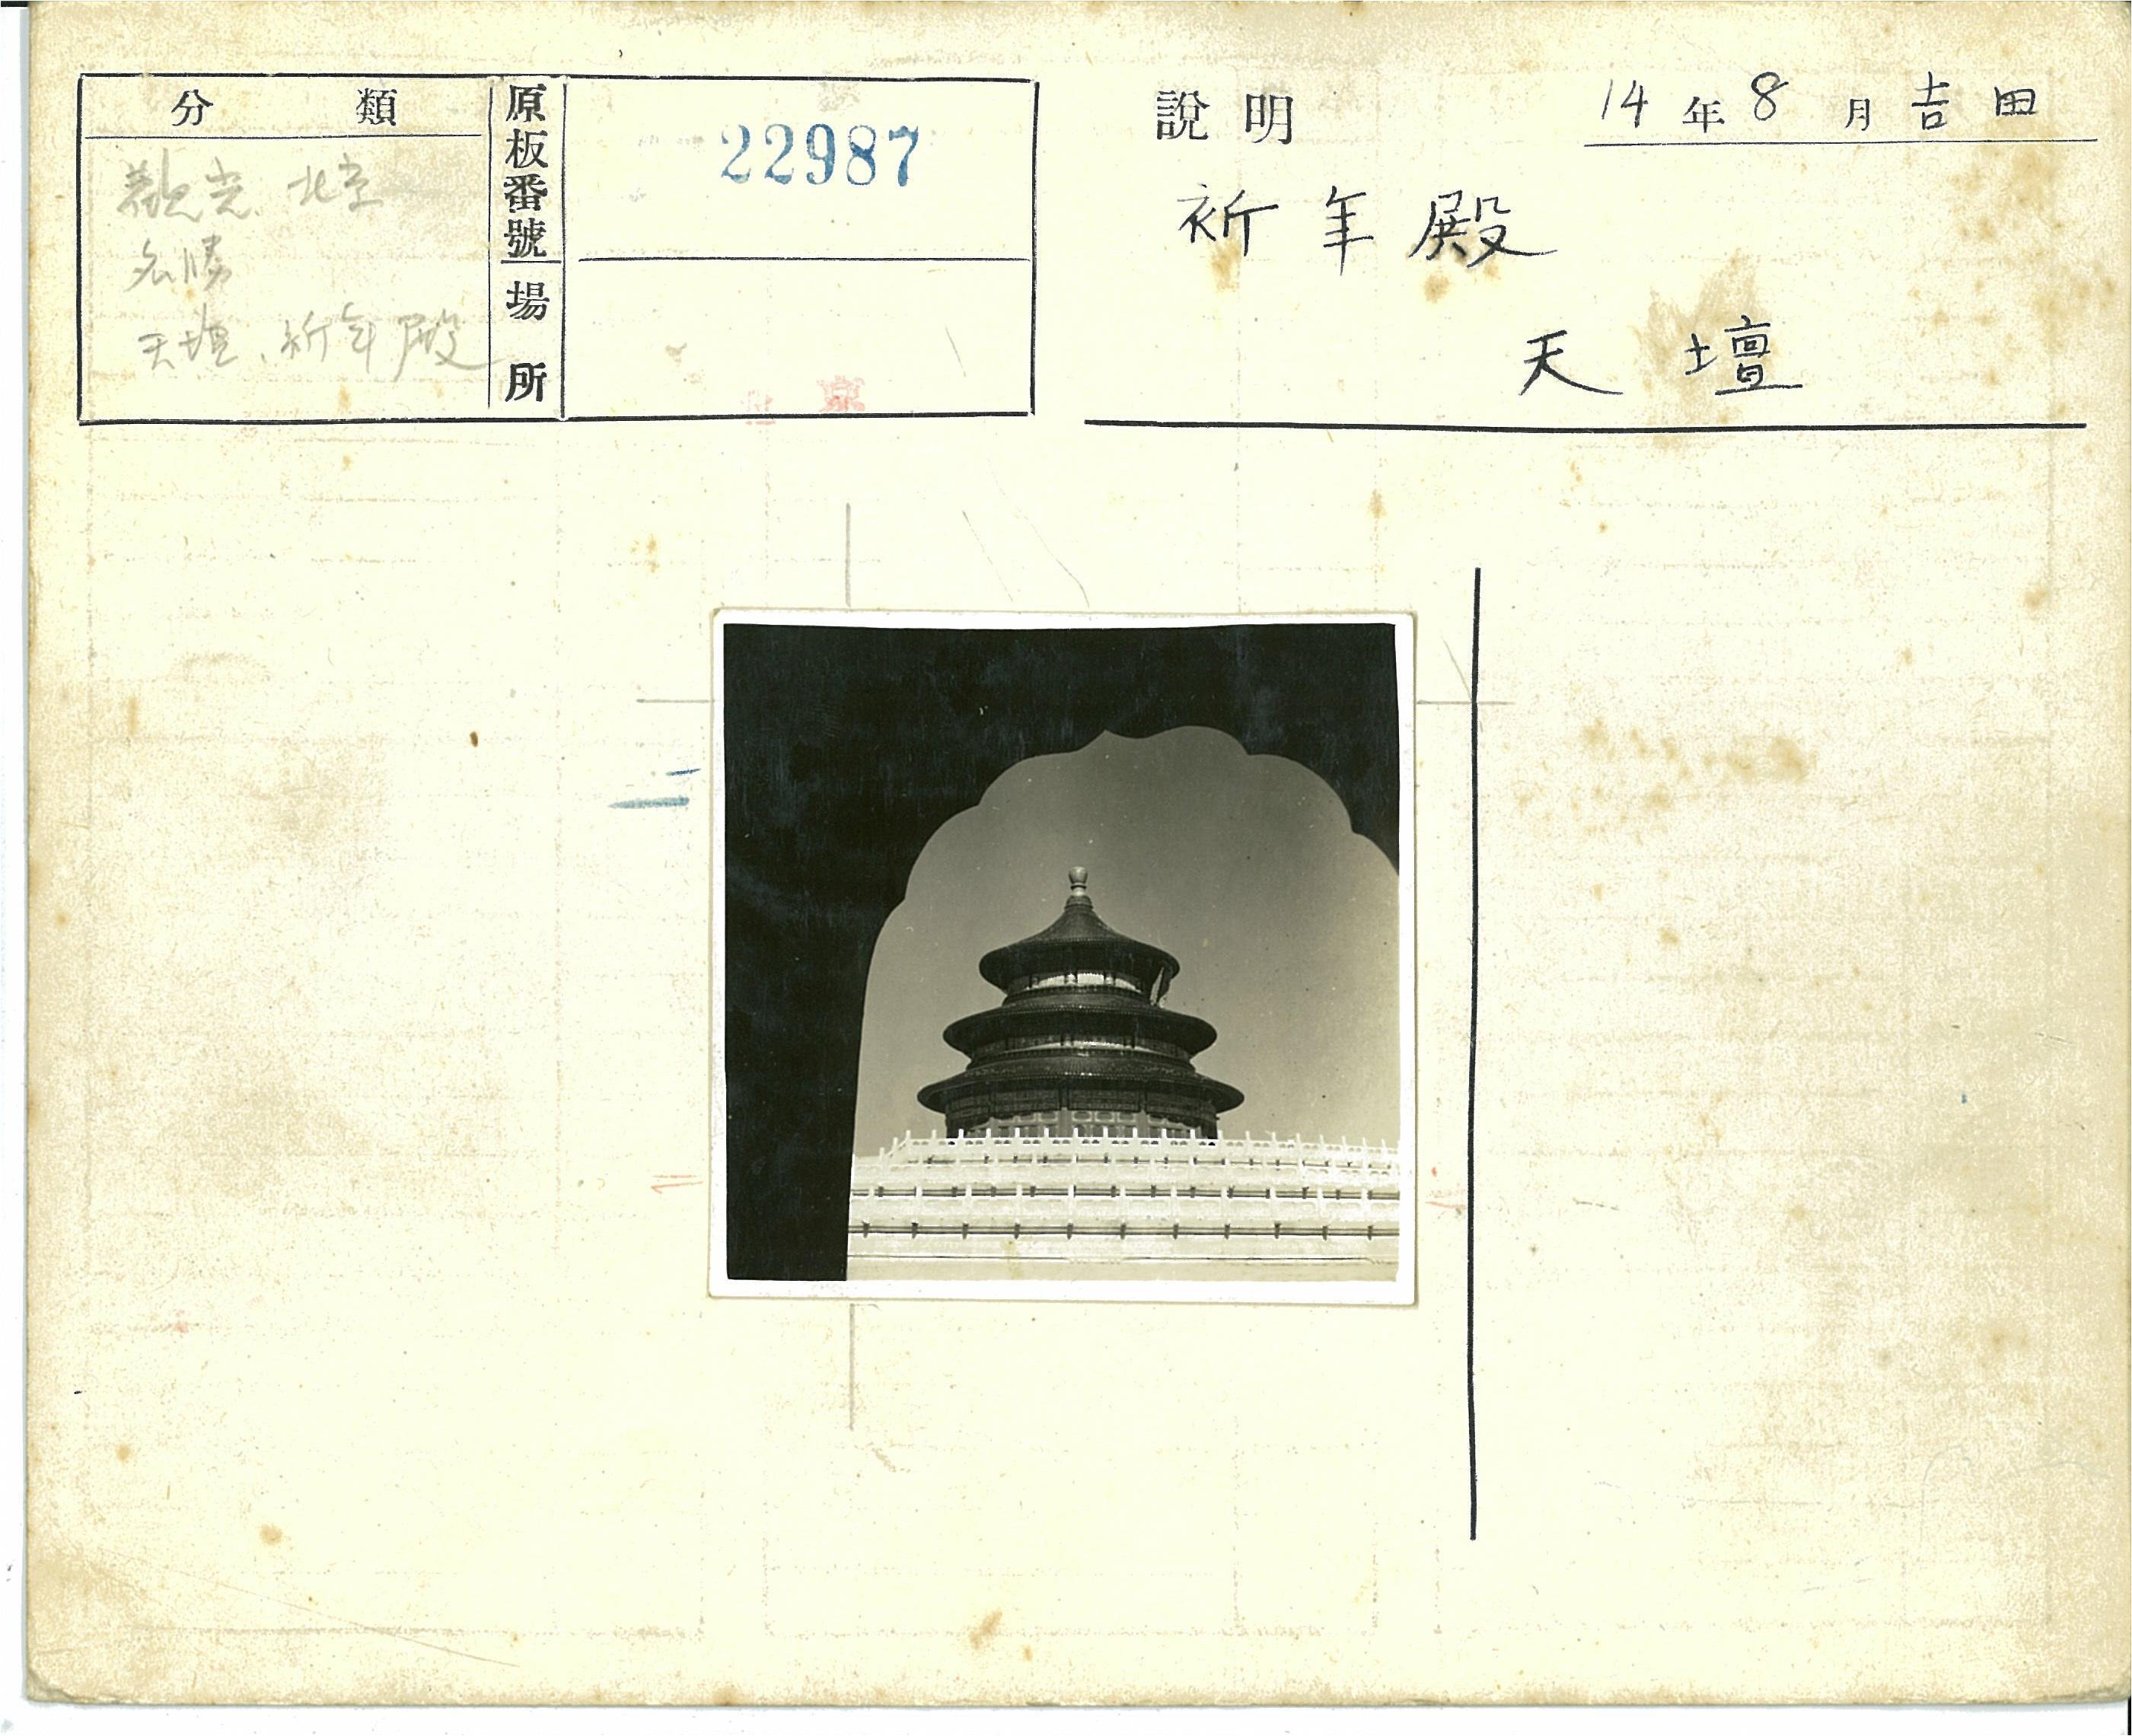 分類
観光 北京
名勝
天壇、祈年殿
原板番號
22987
場所
說明
14年8月吉田
祈年殿
天壇